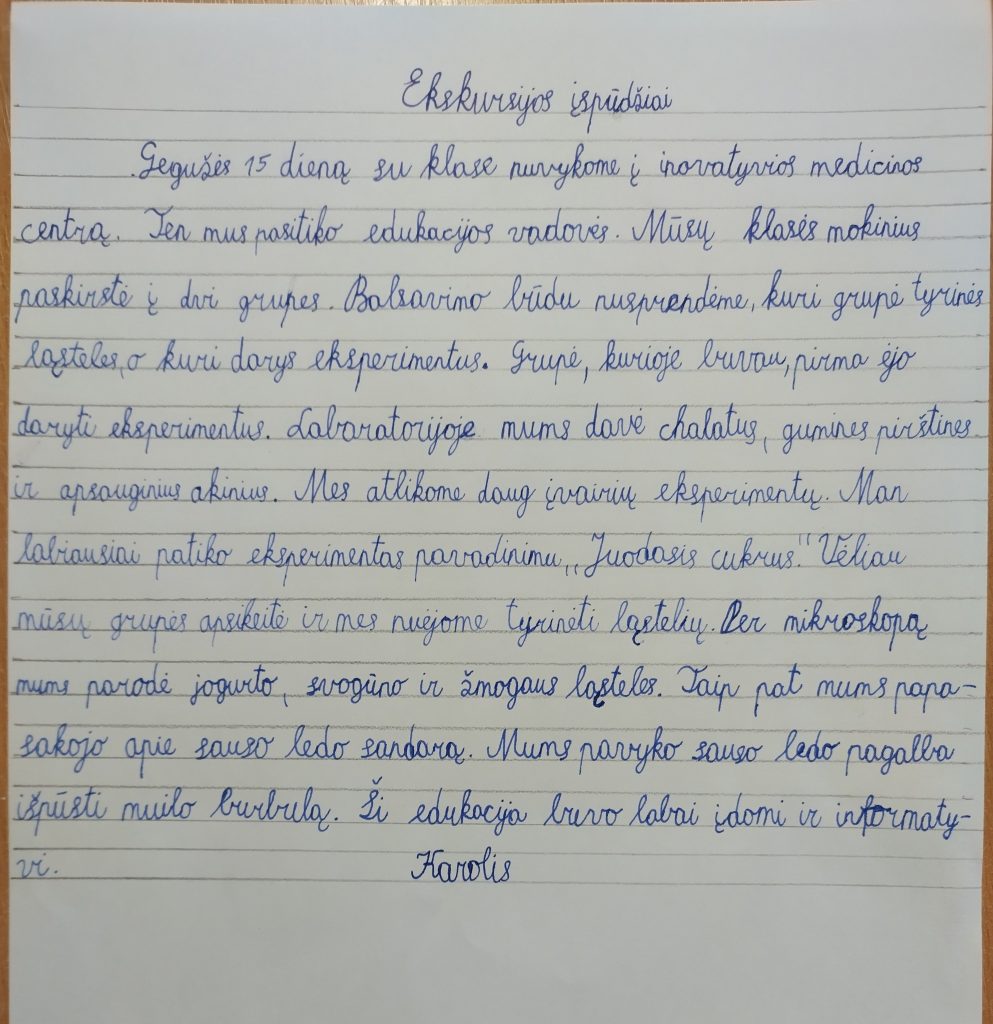 Ekskursijos įspūdžiai
Gegužės 15 dieną su klase nuvykome į inovatyvios medicinos
centrą. Ten mus pasitiko edukacijos vadovės. Mūsų klasės mokinius
paskirstė į dvi grupes. Balsavimo būdu nusprendėme, kuri grupė tyrinės
ląsteles, o kuri darys eksperimentus. Grupė, kurioje buvau, pirma ėjo
daryti eksperimentus. Labaratorijoje mums davė chalatus, gumines pirštines
ir apsauginius akinius. Mes atlikome daug įvairių eksperimentų. Man
labiausiai patiko eksperimentas pavadinimu ,,Juodasis cukrus." Vėliau
mūsų grupės apsikeitė ir mes nuėjome tyrinėti ląstelių. Per mikroskopą
mums parodė jogurto, svogūno ir žmogaus ląsteles. Taip pat mums papa-
sakojo apie sauso ledo sandarą. Mums pavyko sauso ledo pagalba
išpūsti muilo burbulą. Ši edukacija buvo labai įdomi ir informaty-
vi. Karolis